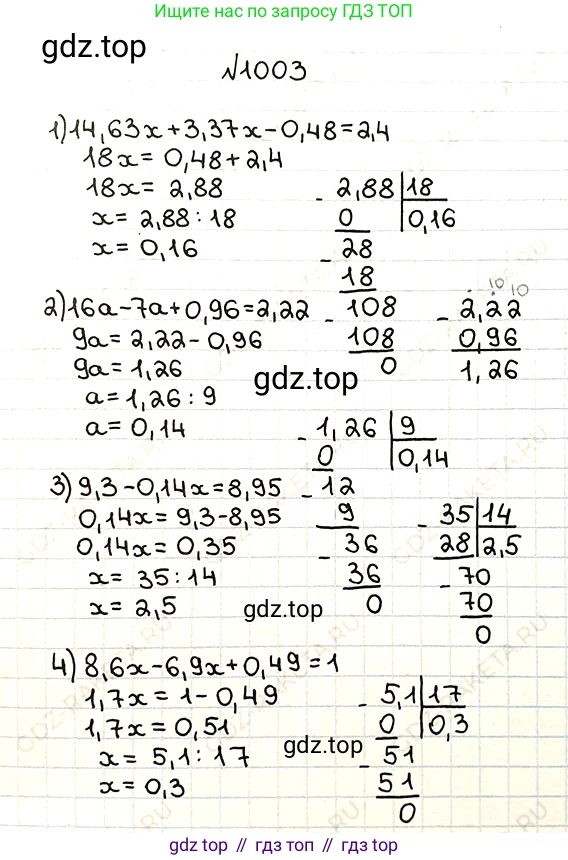 Ищите нас по запросу ГДЗ ТОП
gdz.top
№1003
1) 14,63x+3,37x-0,48=2,4
18x= 0,48+2,4
18x= 2,88
x= 2,88:18
x= 0,16
- 2,88 | 18
0 | 0,16
- 28
18
- 108
108
0
2) 16a-7a+0,96=2,22
9a= 2,22-0,96
9a= 1,26
a= 1,26:9
a= 0,14
10 10
- 2,22
0,96
1,26
gdz.top
- 1,26 | 9
0 | 0,14
- 12
9
- 36
36
0
3) 9,3-0,14x=8,95
0,14x= 9,3-8,95
0,14x= 0,35
x= 35:14
x= 2,5
- 35 | 14
28 | 2,5
- 70
70
0
gdz.top
4) 8,6x-6,9x+0,49=1
1,7x= 1-0,49
1,7x= 0,51
x= 5,1:17
x= 0,3
- 5,1 | 17
0 | 0,3
- 51
51
0
gdz.top
gdz top // гдз топ // гдз.top